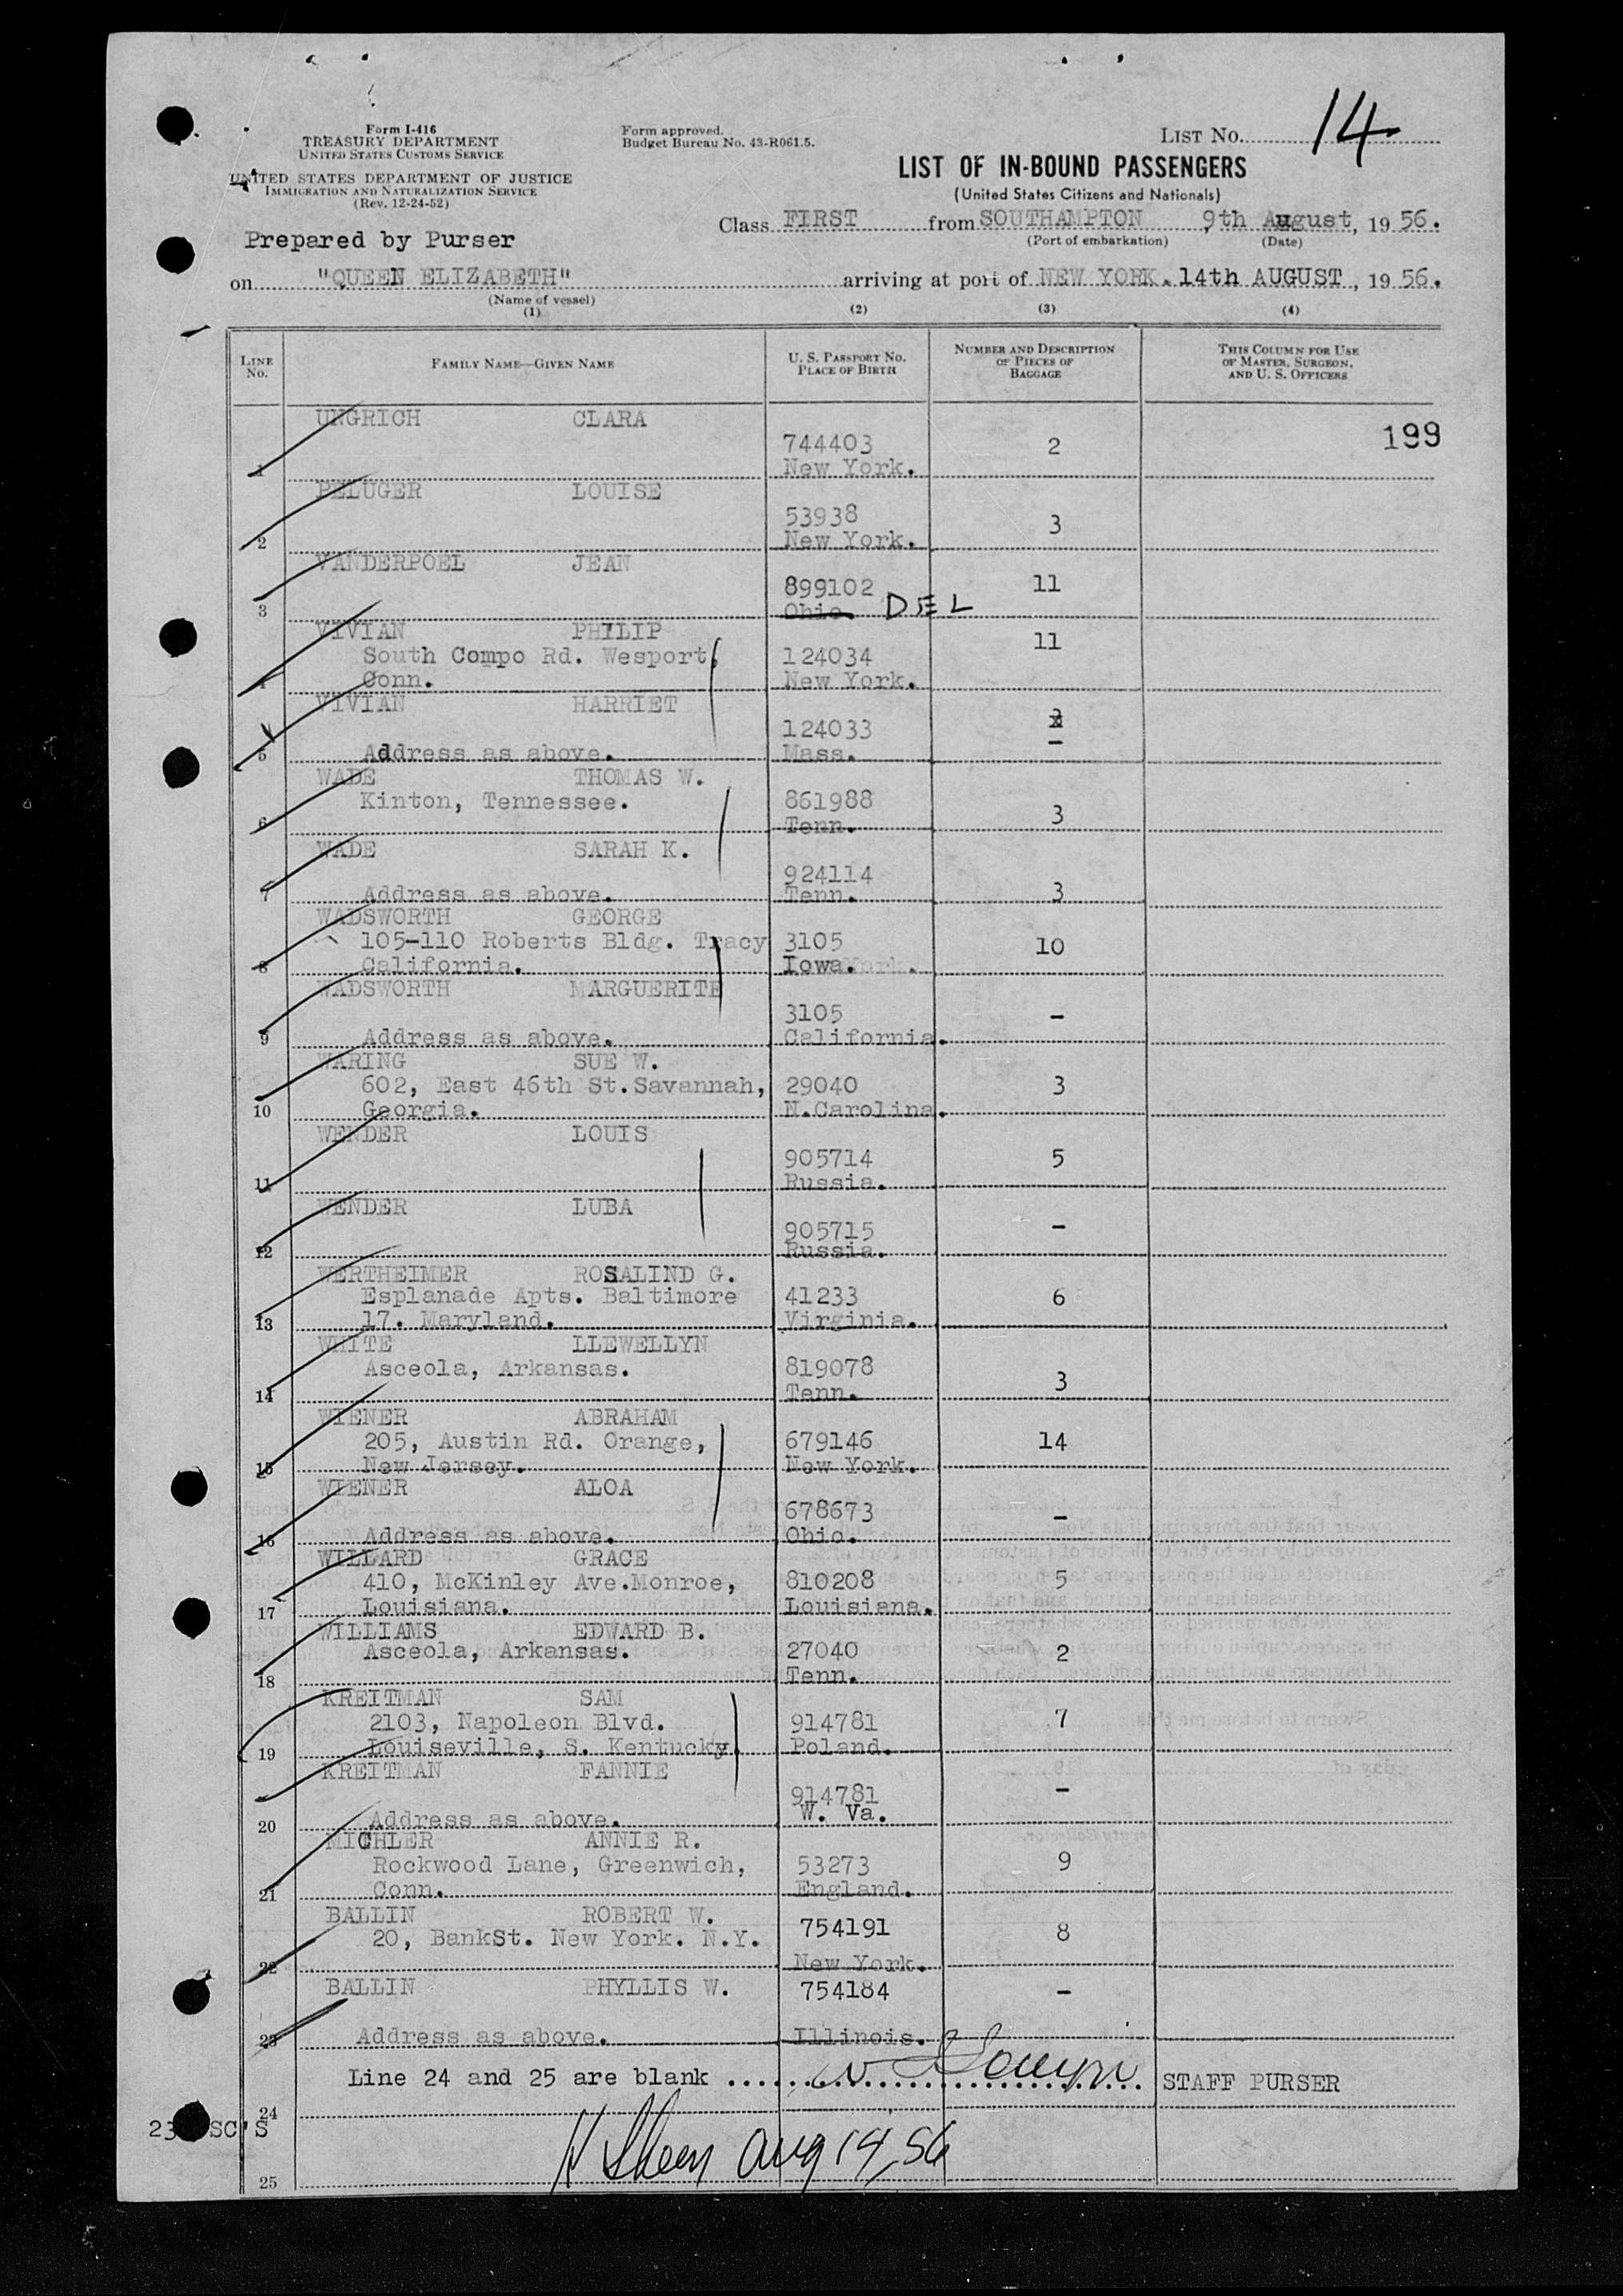 Form I-416
TREASURY DEPARTMENT
UNITED STATES CUSTOMS SERVICE
UNITED STATES DEPARTMENT OF JUSTICE
IMMIGRATION AND NATURALIZATION SERVICE
(Rev. 12-24-52)
Form approved.
Budget Bureau No. 43-R061.5.
LIST No. 14
LIST OF IN-BOUND PASSENGERS
(United States Citizens and Nationals)
Class FIRST from SOUTHAMPTON 9th August, 1956.
(Port of embarkation) (Date)
Prepared by Purser
on "QUEEN ELIZABETH" arriving at port of NEW YORK. 14th AUGUST, 1956.
(Name of vessel)
(1) (2) (3) (4)
LINE No. FAMILY NAME—GIVEN NAME U. S. PASSPORT NO. PLACE OF BIRTH NUMBER AND DESCRIPTION OF PIECES OF BAGGAGE THIS COLUMN FOR USE OF MASTER, SURGEON, AND U. S. OFFICERS
199
UNGRICH CLARA
744403 2
1 New York.
PELUGER LOUISE
53938 3
2 New York.
VANDERPOEL JEAN
899102 11
3 Ohio DEL
VIVIAN PHILIP 11
South Compo Rd. Wesport, 124034
4 Conn. New York.
VIVIAN HARRIET
124033 -
5 Address as above. Mass.
WADE THOMAS W.
Kinton, Tennessee. 861988 3
6 Tenn.
WADE SARAH K.
924114
7 Address as above. Tenn. 3
WADSWORTH GEORGE
105-110 Roberts Bldg. Tracy 3105 10
8 California. Iowa.
WADSWORTH MARGUERITE
3105 -
9 Address as above. California.
WARING SUE W.
602, East 46th St.Savannah, 29040 3
10 Georgia. N.Carolina.
WENDER LOUIS
905714 5
11 Russia.
WENDER LUBA
905715 -
12 Russia.
WERTHEIMER ROSALIND G.
Esplanade Apts. Baltimore 41233 6
13 17. Maryland. Virginia.
WHITE LLEWELLYN
Asceola, Arkansas. 819078 3
14 Tenn.
WIENER ABRAHAM
205, Austin Rd. Orange, 679146 14
15 New Jersey. New York.
WIENER ALOA
678673 -
16 Address as above. Ohio.
WILLARD GRACE
410, McKinley Ave.Monroe, 810208 5
17 Louisiana. Louisiana.
WILLIAMS EDWARD B.
Asceola, Arkansas. 27040 2
18 Tenn.
KREITMAN SAM
2103, Napoleon Blvd. 914781 7
19 Louiseville, S. Kentucky. Poland.
KREITMAN FANNIE
914781 -
20 Address as above. W. Va.
MICHLER ANNIE R.
Rockwood Lane, Greenwich, 53273 9
21 Conn. England.
BALLIN ROBERT W. 754191
20, BankSt. New York. N.Y. 8
22 New York.
BALLIN PHYLLIS W. 754184 -
23 Address as above. Illinois.
Line 24 and 25 are blank STAFF PURSER
24
23 SC'S
Aug 14, 56
25